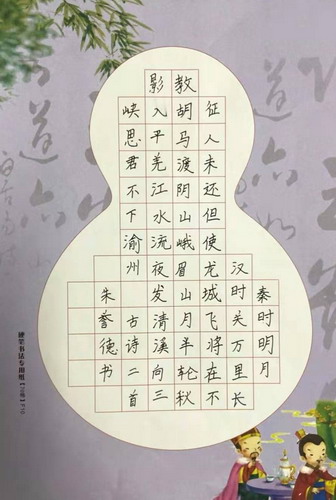 秦时明月
汉时关万里长
征人未还但使龙城飞将在不
教胡马渡阴山峨眉山月羊轮秋
影入平羌江水流夜发清溪向三
峡思君不下渝州 古诗二首
朱誉德书
硬笔书法专用纸